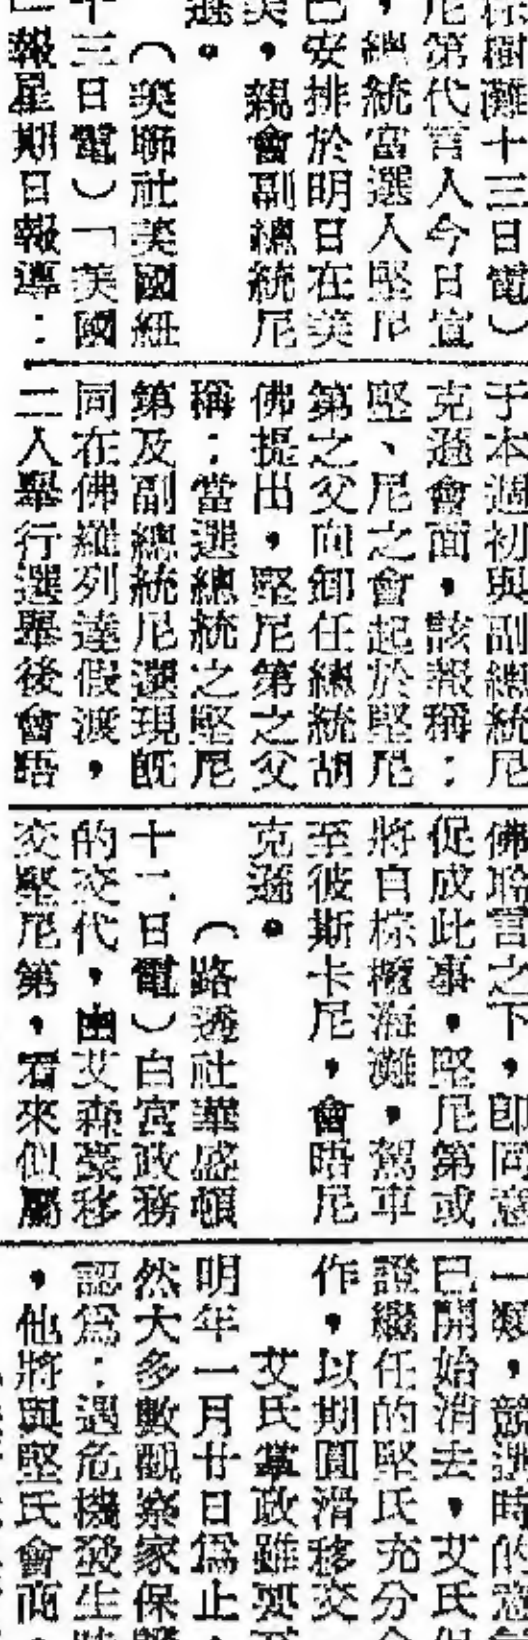 棕樹灘十三日電）
尼第代言人今日宣
，總統當選人堅尼
已安排於明日在美
美，親會副總統尼
遜。
（美聯社美國紐
十三日電）「美國
報星期日報導：
于本週初與副總統尼
克遜會面，該報稱：
堅、尼之會起於堅尼
第之父向卸任總統胡
佛提出，堅尼第之父
稱：當選總統之堅尼
第及副總統尼遜現既
同在佛羅列達假渡，
二人舉行選舉後會晤
佛聆言之下，即同意
促成此事，堅尼第或
將自棕櫚海灘，駕車
至彼斯卡尼，會晤尼
克遜。
（路透社華盛頓
十二日電）白宮政務
的交代，由艾森豪移
交堅尼第，看來似屬
一類，競選時的意
已開始消去，艾氏
證繼任的堅氏充分
作，以期圓滑移交
艾氏掌政雖要
明年一月廿日為止，
然大多數觀察家保
認為：遇危機發生
，他將與堅氏會商